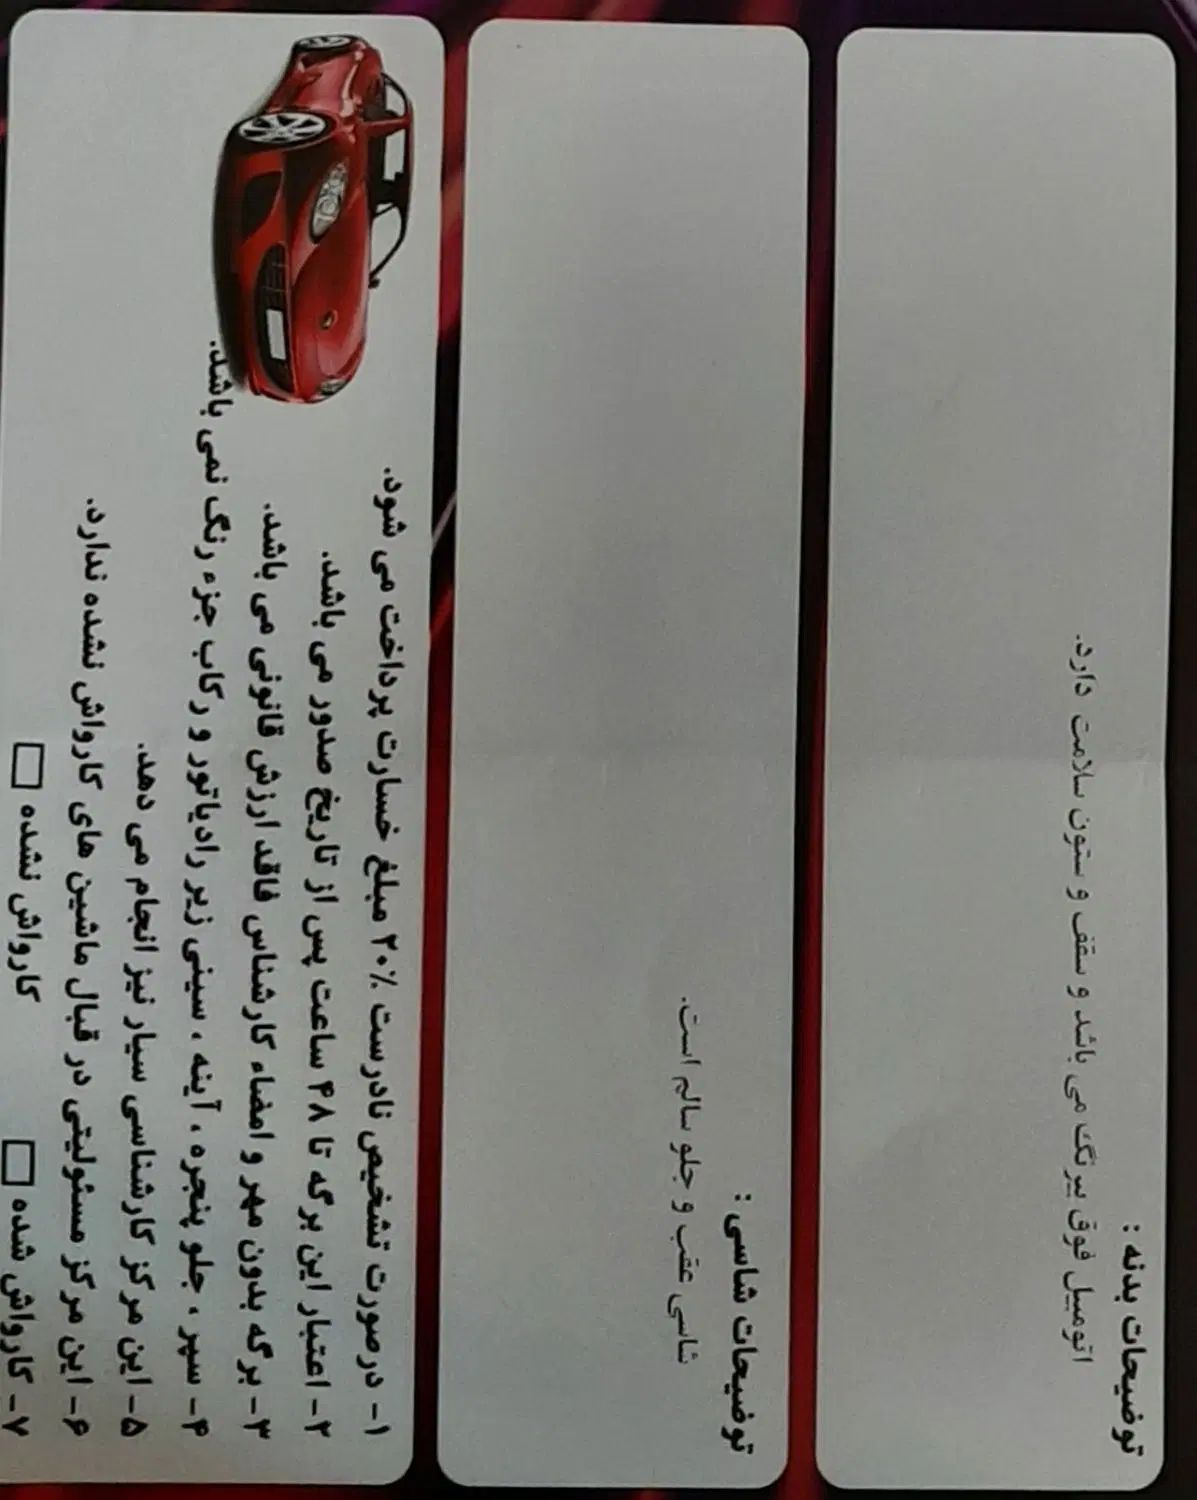 توضیحات بدنه :
اتومبیل فوق بیرنگ می باشد و سقف و ستون سلامت دارد.
توضیحات شاسی :
شاسی عقب و جلو سالم است.
۱- درصورت تشخیص نادرست ۲۰٪ مبلغ خسارت پرداخت می شود.
۲- اعتبار این برگه تا ۴۸ ساعت پس از تاریخ صدور می باشد.
۳- برگه بدون مهر و امضاء کارشناس فاقد ارزش قانونی می باشد.
۴- سپر ، جلو پنجره ، آینه ، سینی زیر رادیاتور و رکاب جزء رنگ نمی باشد.
۵- این مرکز کارشناسی سیار نیز انجام می دهد.
۶- این مرکز مسئولیتی در قبال ماشین های کارواش نشده ندارد.
۷- کارواش شده □ کارواش نشده □